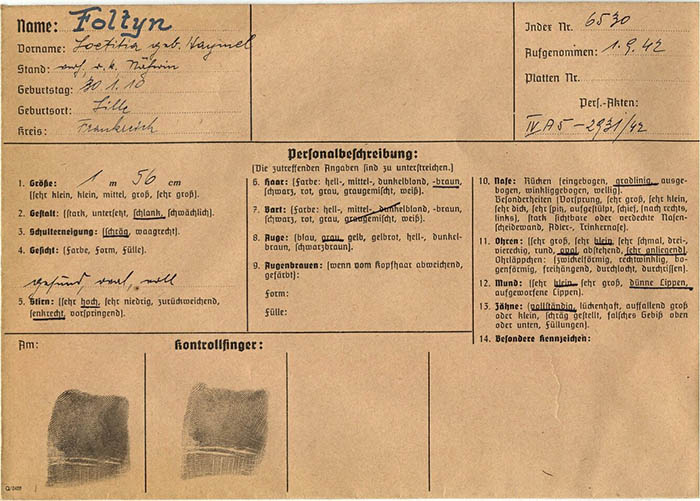 Name: Foltyn
Vorname: Loetitia geb. Haynel
Stand: verh. r. k. Näherin
Geburtstag: 30 1. 10
Geburtsort: Lille
Kreis: Frankreich
Index Nr. 6530
Aufgenommen: 1. 9. 42
Platten Nr.
Pers.-Akten:
IV A 5 – 2931/42
Personalbeschreibung:
(Die zutreffenden Angaben sind zu unterstreichen.)
1. Größe: 1 m 56 cm
(sehr klein, klein, mittel, groß, sehr groß).
2. Gestalt: (stark, untersetzt, schlank, schwächlich).
3. Schulterneigung: (schräg, waagrecht).
4. Gesicht: (Farbe, Form, Fülle).
gesund, oval, voll
5. Stirn: (sehr hoch, sehr niedrig, zurückweichend,
senkrecht, vorspringend).
6. Haar: (Farbe: hell-, mittel-, dunkelblond, -braun,
schwarz, rot, grau, graugemischt, weiß).
7. Bart: (Farbe: hell-, mittel-, dunkelblond, -braun,
schwarz, rot, grau, graugemischt, weiß).
8. Auge: (blau, grau, gelb, gelbrot, hell-, dunkel-
braun, schwarzbraun).
9. Augenbrauen: (wenn vom Kopfhaar abweichend,
gefärbt):
Form:
Fülle:
10. Nase: Rücken (eingebogen, gradlinig, ausge-
bogen, winkliggebogen, wellig).
Besonderheiten (Vorsprung, sehr groß, sehr klein,
sehr dick, sehr spitz, aufgestülpt, schief, (nach rechts,
links), stark sichtbare oder verdeckte Nasen-
scheidewand, Adler-, Trinkernase).
11. Ohren: (sehr groß, sehr klein, sehr schmal, drei-
viereckig, rund, oval, abstehend, sehr anliegend).
Ohrläppchen: (zwickelförmig, rechtwinklig, bo-
genförmig, freihängend, durchlocht, durchrissen).
12. Mund: (sehr klein, sehr groß, dünne Lippen,
aufgeworfene Lippen).
13. Zähne: (vollständig, lückenhaft, auffallend groß
oder klein, schräg gestellt, falsches Gebiß oben
oder unten, Füllungen).
14. Besondere Kennzeichen:
Am:
Kontrollfinger: